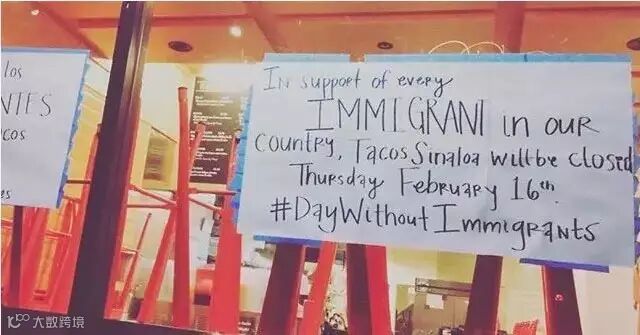 los
NTES
COS
es
In support of every
IMMIGRANT in our
country, Tacos Sinaloa will be closed
Thursday February 16th.
#DayWithout Immigrants
大数跨境